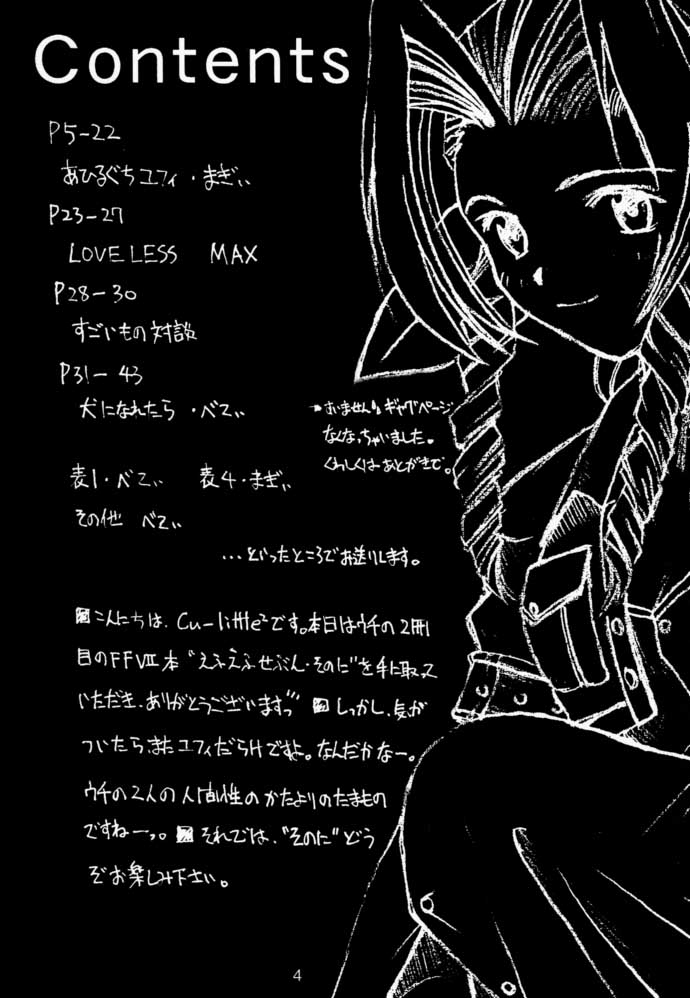 Contents
P5-22
あひるぐちユフィ・まぎぃ
P23-27
LOVE LESS MAX
P28-30
すごいもの対談
P31-43
犬になれたら・べてぃ
すいません。ギャグページ
なくなっちゃいました。
くわしくはあとがきで。
表1・べてぃ 表4・まぎぃ
その他 べてぃ
…といったところでお送りします。
こんにちは、Cu-little²です。本日はウチの2冊
目のFFⅦ本"えふえふせぶん・そのに"を手に取って
いただき、ありがとうございますっ しっかし、気が
ついたらまたユフィだらけですよ。なんだかなー。
ウチの2人の人間性のかたよりのたまもの
ですねーっ。それでは、"そのに"どう
ぞお楽しみ下さい。
4